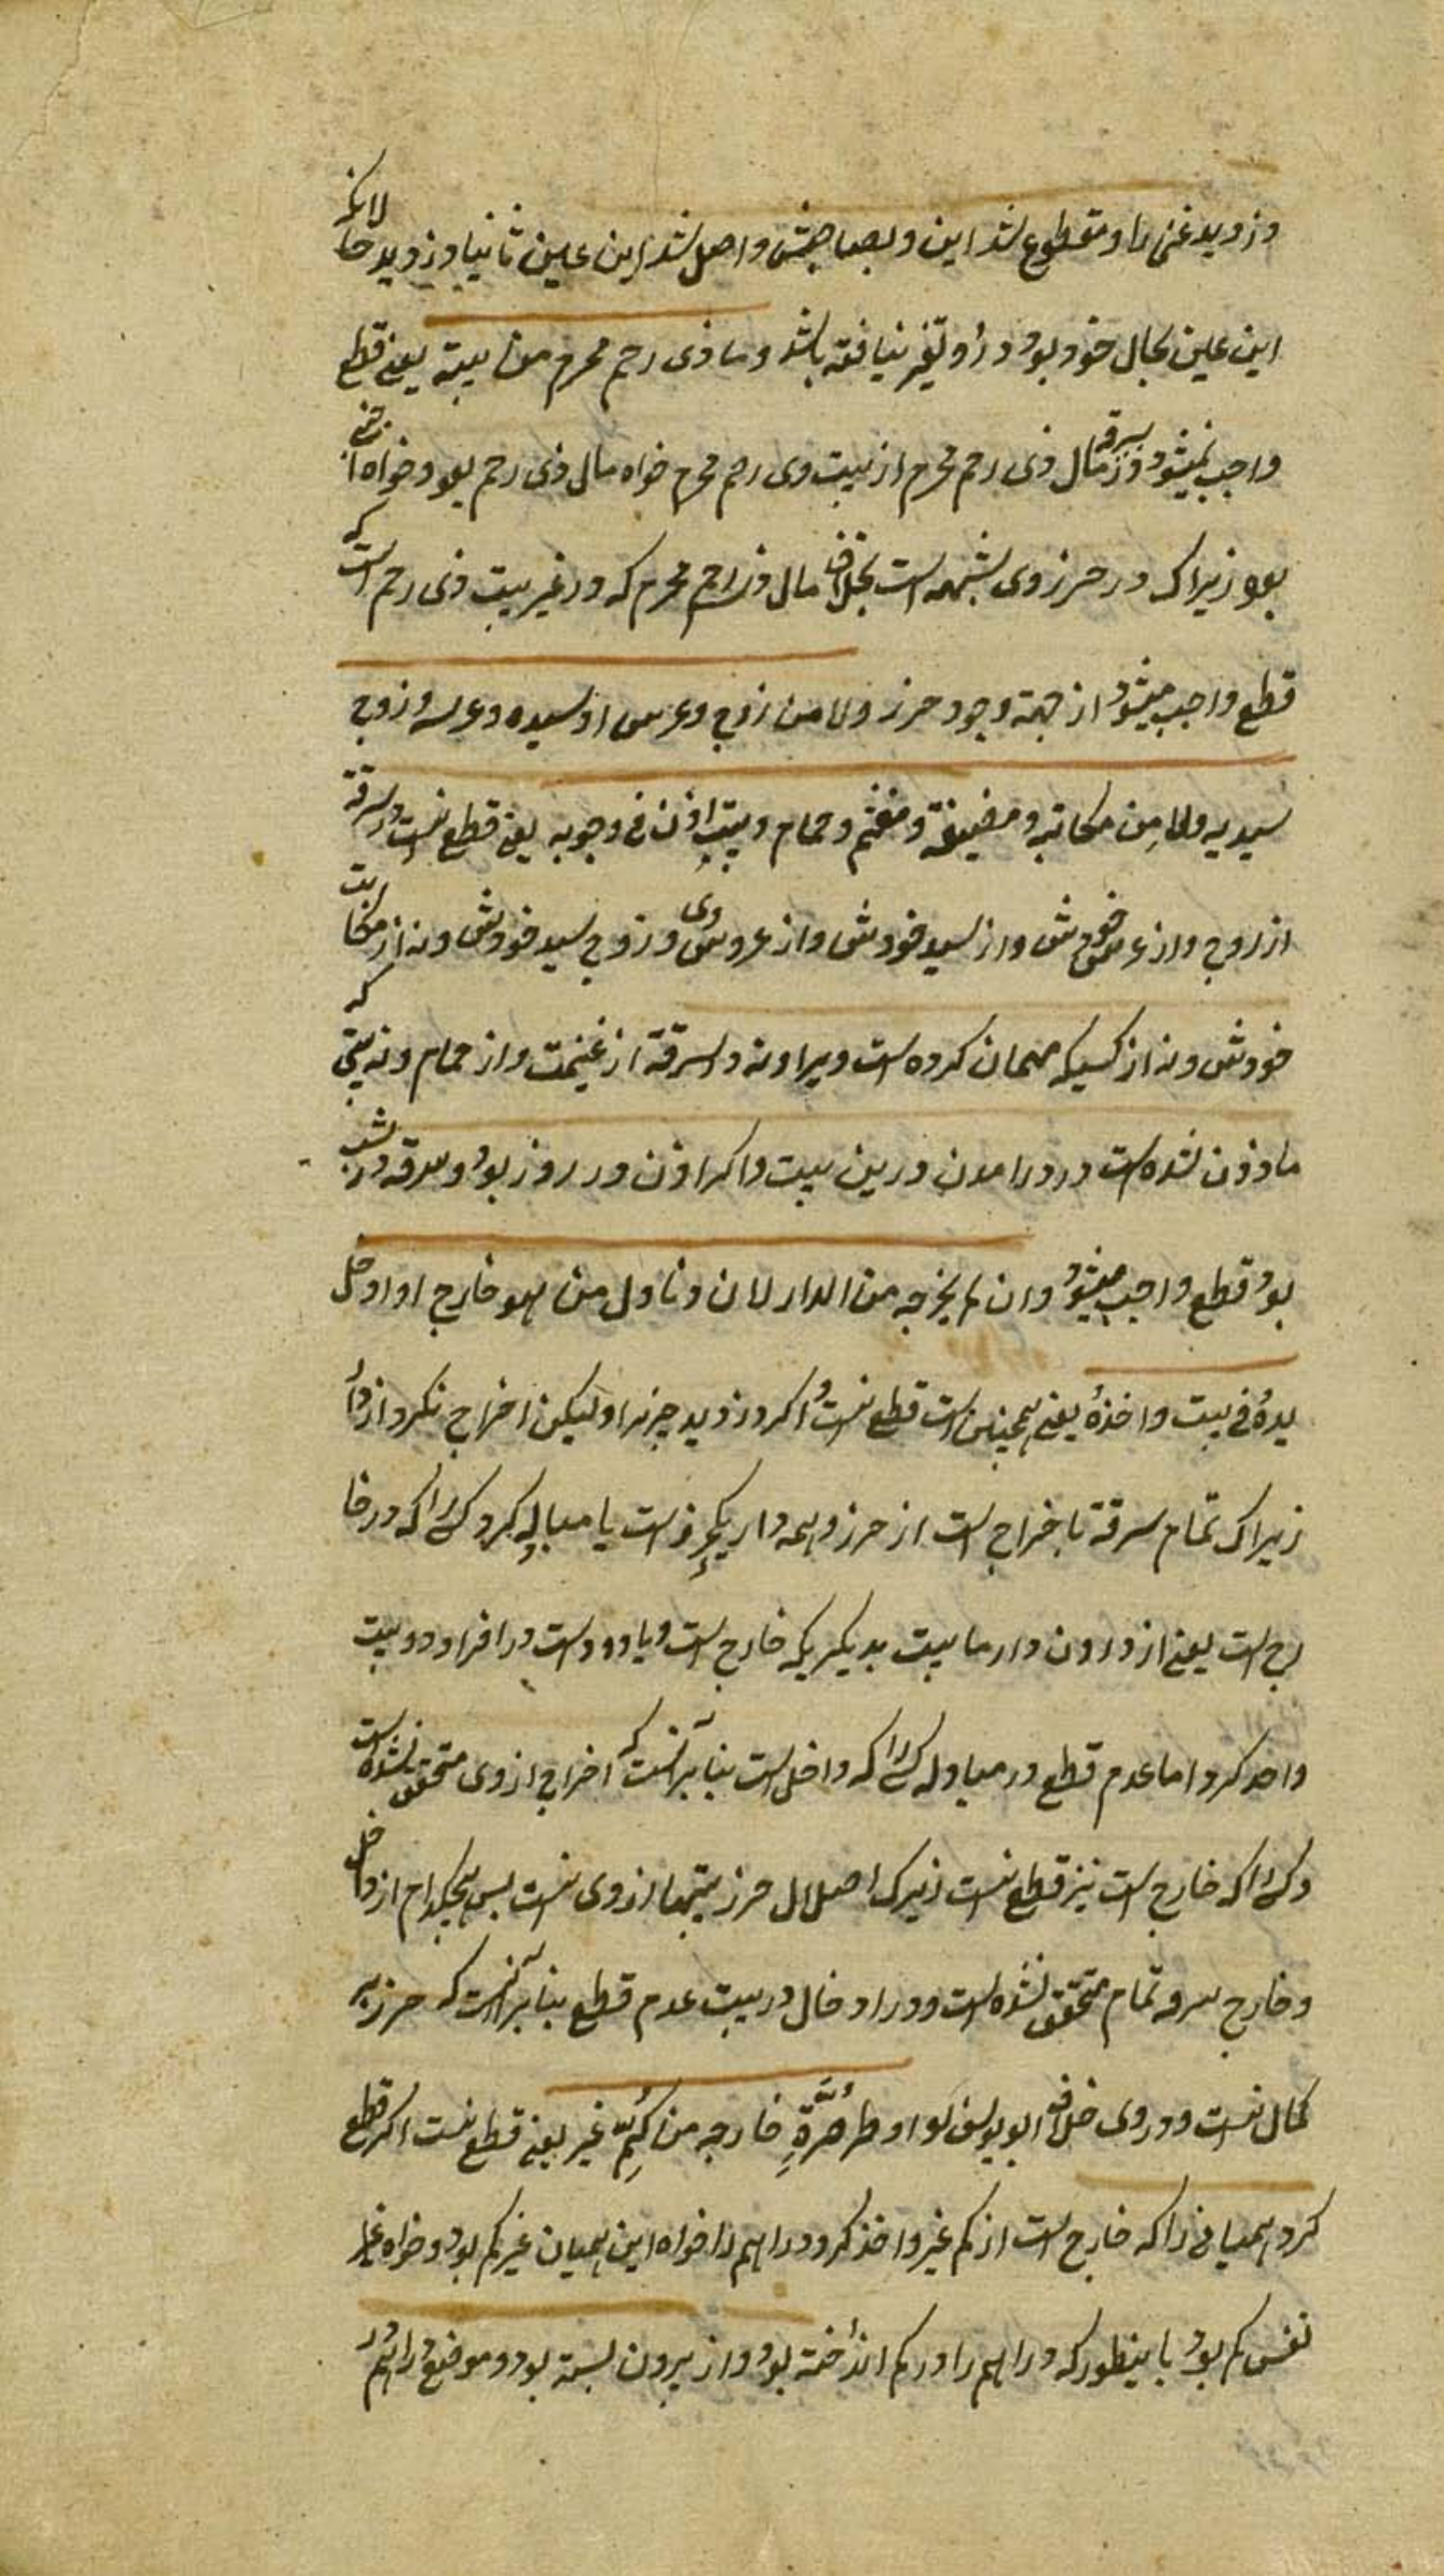 دزدید غنی را و مقطوع شد این و بصاحبش واصل شد این عین ثانیا دزدید حالانکه
این عین بحال خود بود در او تغیر نیافته باشد و ما ذی رحم محرم من بیته یعنی قطع
واجب نمیشود در سرقه مال ذی رحم محرم از بیت ذی رحم محرم خواه مال ذی رحم بود و خواه اجنبی
بود زیراکه در حرز وی شبهه است بخلاف مال ذی رحم محرم که در غیر بیت ذی رحم است که
قطع واجب میشود از جهة وجود حرز ولا من زوج وعرس او سیده وعرسه وزوج
سیدیه ولا من مکاتبه ومضیفه ومغنم وحمام وبیت اذن فی دخوله یعنی قطع نیست در سرقة
از زوج و از عرس خودش و از سید خودش و از عروس وی و زوج سید خودش و نه از مکاتب
خودش و نه از کسیکه مهمان کرده است ویرا و نه در سرقة از غنیمت و از حمام و نه بیتی که
ماذون شده است در درامدن درین بیت و اکر اذن در روز بود و سرقه در شب
بود قطع واجب میشود وان لم یخرجه من الدار لا ان وناول من هو خارج او ادخل
یده فی بیت واخذه یعنی همچنین است قطع نیست اکر دزدید چیزیرا ولیکن اخراج نکرد از دار
زیراکه تمام سرقة باخراج است از حرز و همه دار یک حرز است یا مباوله کرد کسی را که در خا
رج است یعنی از درون دار یا بیت بدیکریکه خارج است و یا دو دست در افراد دو بیت
واخذ کرد اما عدم قطع در مباوله کسی را که داخل است بنابر آنست که اخراج از وی متحقق نشده است
و کسی را که خارج است نیز قطع نیست زیراکه اصلال حرز بتیها از وی نیست پس هیچکدام از داخل
و خارج سرقه تمام متحقق نشده است و در ادخال در بیت عدم قطع بنابر آنست که حرز بر
کمال نیست و در وی خلاف ابو یوسف او طر صرّة خارجه من کمّ غیر یعنی قطع نیست اکر قطع
کرد همیانی را که خارج است از کم غیر واخذ کرد دراهم را خواه این همیان غیر کم بود و خواه
نفس کم بود باینطور که دراهم را در کم انداخته بود و از بیرون بسته بود و موضع دراهم